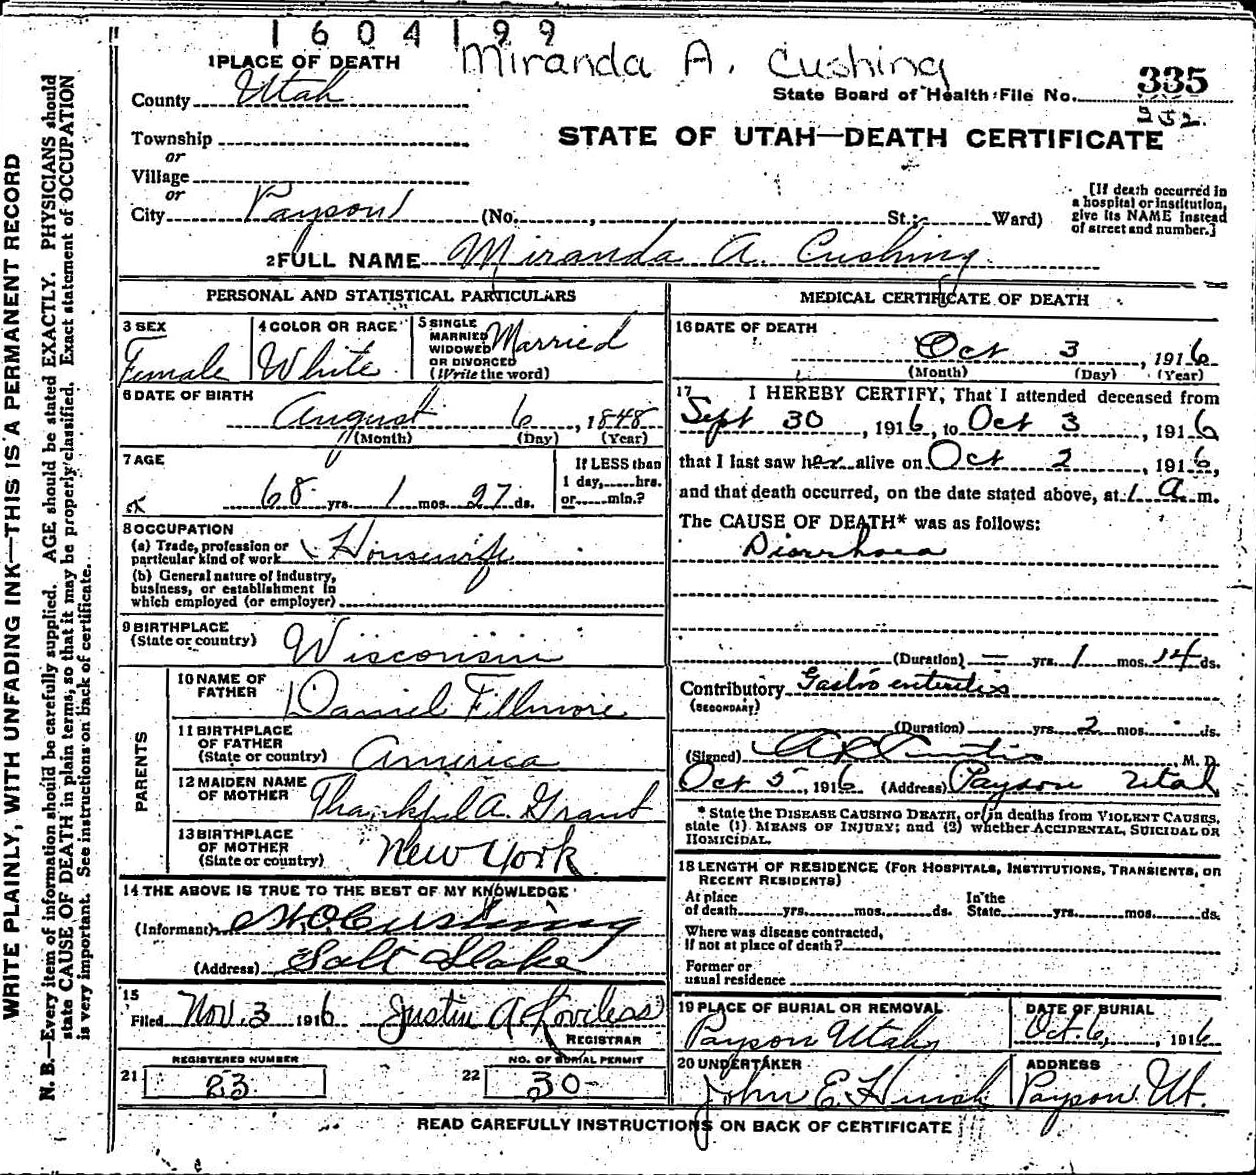 1604199
Miranda A. Cushing
1 PLACE OF DEATH
County Utah
State Board of Health File No. 335
232.
Township
or
Village
or
City Payson (No. , St.; Ward)
STATE OF UTAH—DEATH CERTIFICATE
[If death occurred in
a hospital or institution,
give its NAME instead
of street and number.]
2 FULL NAME Miranda A. Cushing
PERSONAL AND STATISTICAL PARTICULARS
3 SEX
Female
4 COLOR OR RACE
White
5 SINGLE
MARRIED
WIDOWED
OR DIVORCED
(Write the word)
Married
6 DATE OF BIRTH
August 6, 1848
(Month) (Day) (Year)
7 AGE
68 yrs. 1 mos. 27 ds.
If LESS than
1 day,......hrs.
or......min.?
8 OCCUPATION
(a) Trade, profession or
particular kind of work Housewife
(b) General nature of industry,
business, or establishment in
which employed (or employer)
9 BIRTHPLACE
(State or country) Wisconsin
PARENTS
10 NAME OF
FATHER Daniel Fillmore
11 BIRTHPLACE
OF FATHER
(State or country) America
12 MAIDEN NAME
OF MOTHER Thankful A. Grant
13 BIRTHPLACE
OF MOTHER
(State or country) New York
14 THE ABOVE IS TRUE TO THE BEST OF MY KNOWLEDGE
(Informant) Cushing
(Address) Salt Lake
15
Filed Nov. 3 1916 Justin A. Loveless
REGISTRAR
REGISTERED NUMBER
21 23
NO. OF BURIAL PERMIT
22 30
MEDICAL CERTIFICATE OF DEATH
16 DATE OF DEATH
Oct 3, 1916
(Month) (Day) (Year)
17 I HEREBY CERTIFY, That I attended deceased from
Sept 30, 1916, to Oct 3, 1916
that I last saw her alive on Oct 2, 1916,
and that death occurred, on the date stated above, at 1 A m.
The CAUSE OF DEATH* was as follows:
Diarrhoea
(Duration) — yrs. 1 mos. 14 ds.
Contributory Gastro enteritis
(SECONDARY)
(Duration) yrs. 2 mos. ds.
(Signed) Curtis M. D.
Oct 5, 1916 (Address) Payson Utah
* State the DISEASE CAUSING DEATH, or, in deaths from VIOLENT CAUSES,
state (1) MEANS OF INJURY; and (2) whether ACCIDENTAL, SUICIDAL OR
HOMICIDAL.
18 LENGTH OF RESIDENCE (FOR HOSPITALS, INSTITUTIONS, TRANSIENTS, OR
RECENT RESIDENTS)
At place
of death......yrs.......mos.......ds.
In the
State......yrs.......mos.......ds.
Where was disease contracted,
if not at place of death?
Former or
usual residence
19 PLACE OF BURIAL OR REMOVAL
Payson Utah
DATE OF BURIAL
Oct. 6, 1916
20 UNDERTAKER
John E. Huish
ADDRESS
Payson Ut.
READ CAREFULLY INSTRUCTIONS ON BACK OF CERTIFICATE
WRITE PLAINLY, WITH UNFADING INK—THIS IS A PERMANENT RECORD
N. B.—Every item of information should be carefully supplied. AGE should be stated EXACTLY. PHYSICIANS should
state CAUSE OF DEATH in plain terms, so that it may be properly classified. Exact statement of OCCUPATION
is very important. See instructions on back of certificate.